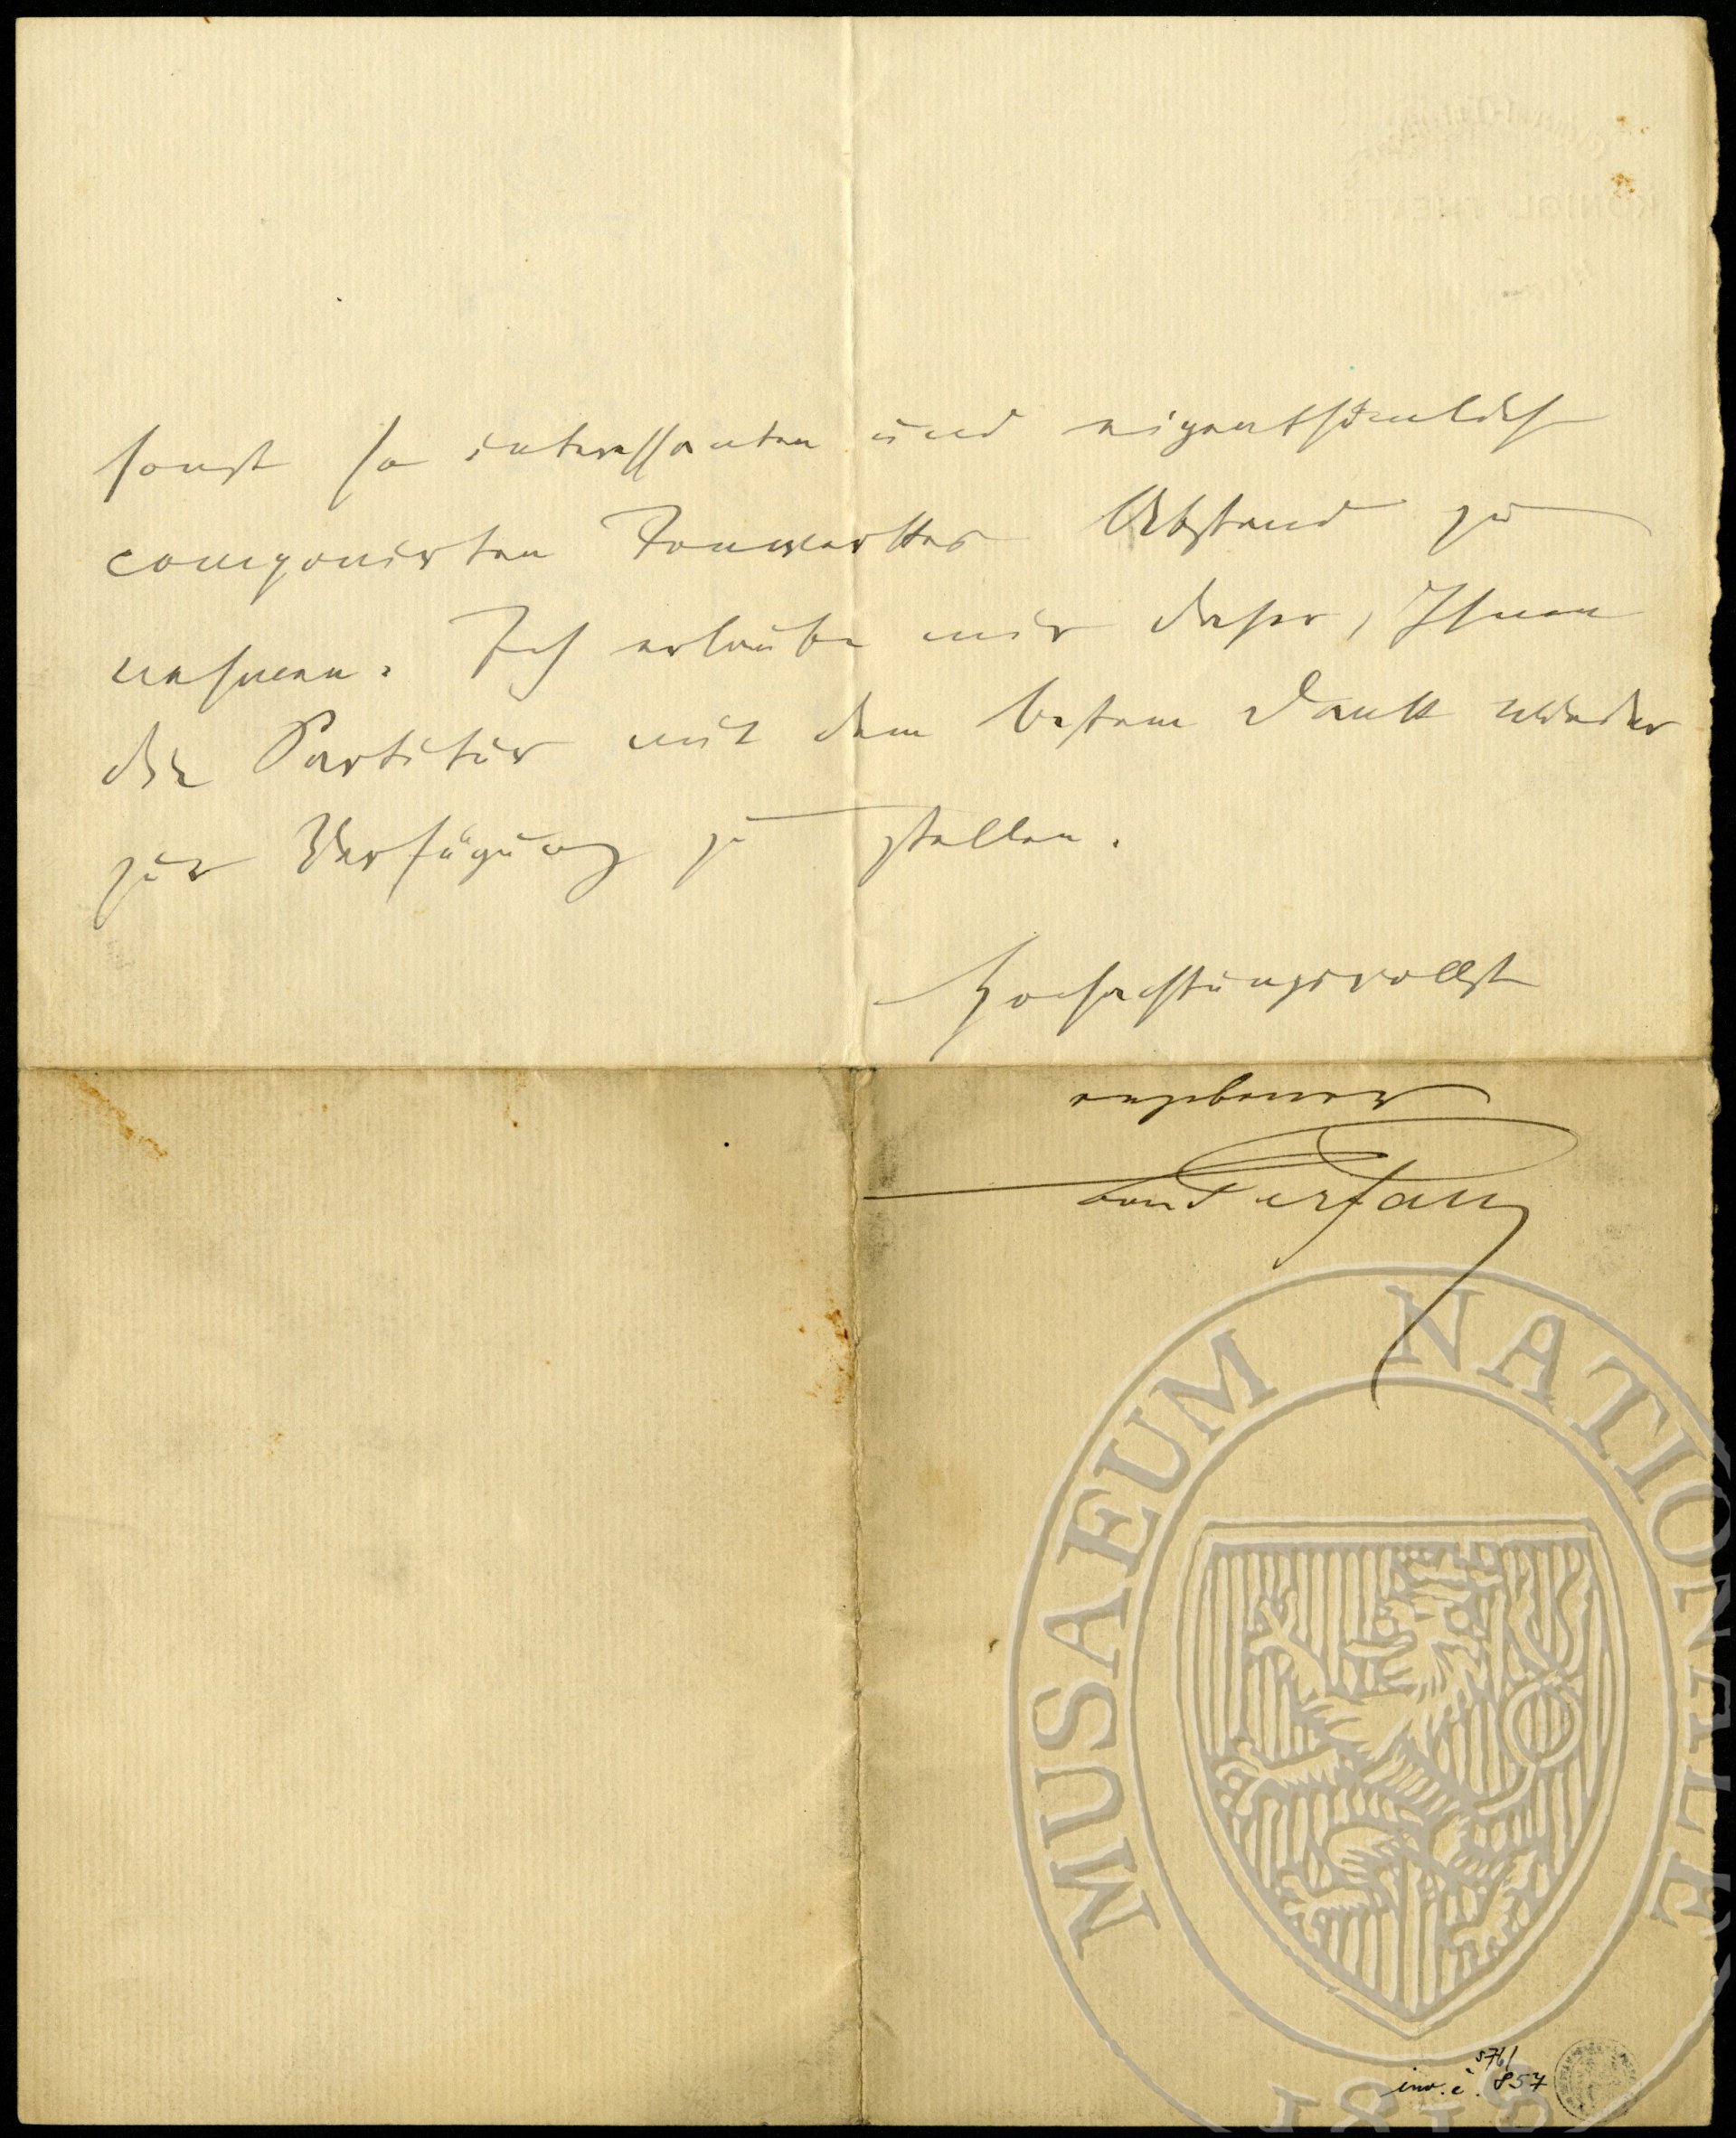 sonst so interessanten und eigenthümlich
componirten Tonwerkes Abstand zu
nehmen. Ich erlaube mir daher, Ihnen
die Partitur mit dem besten Dank wieder
zur Verfügung zu stellen.
Hochachtungsvollst
ergebener
von Perfall
KÖNIGL. THEATER
MUSAEUM NATIONALE
1818
576/
inv. č. 857